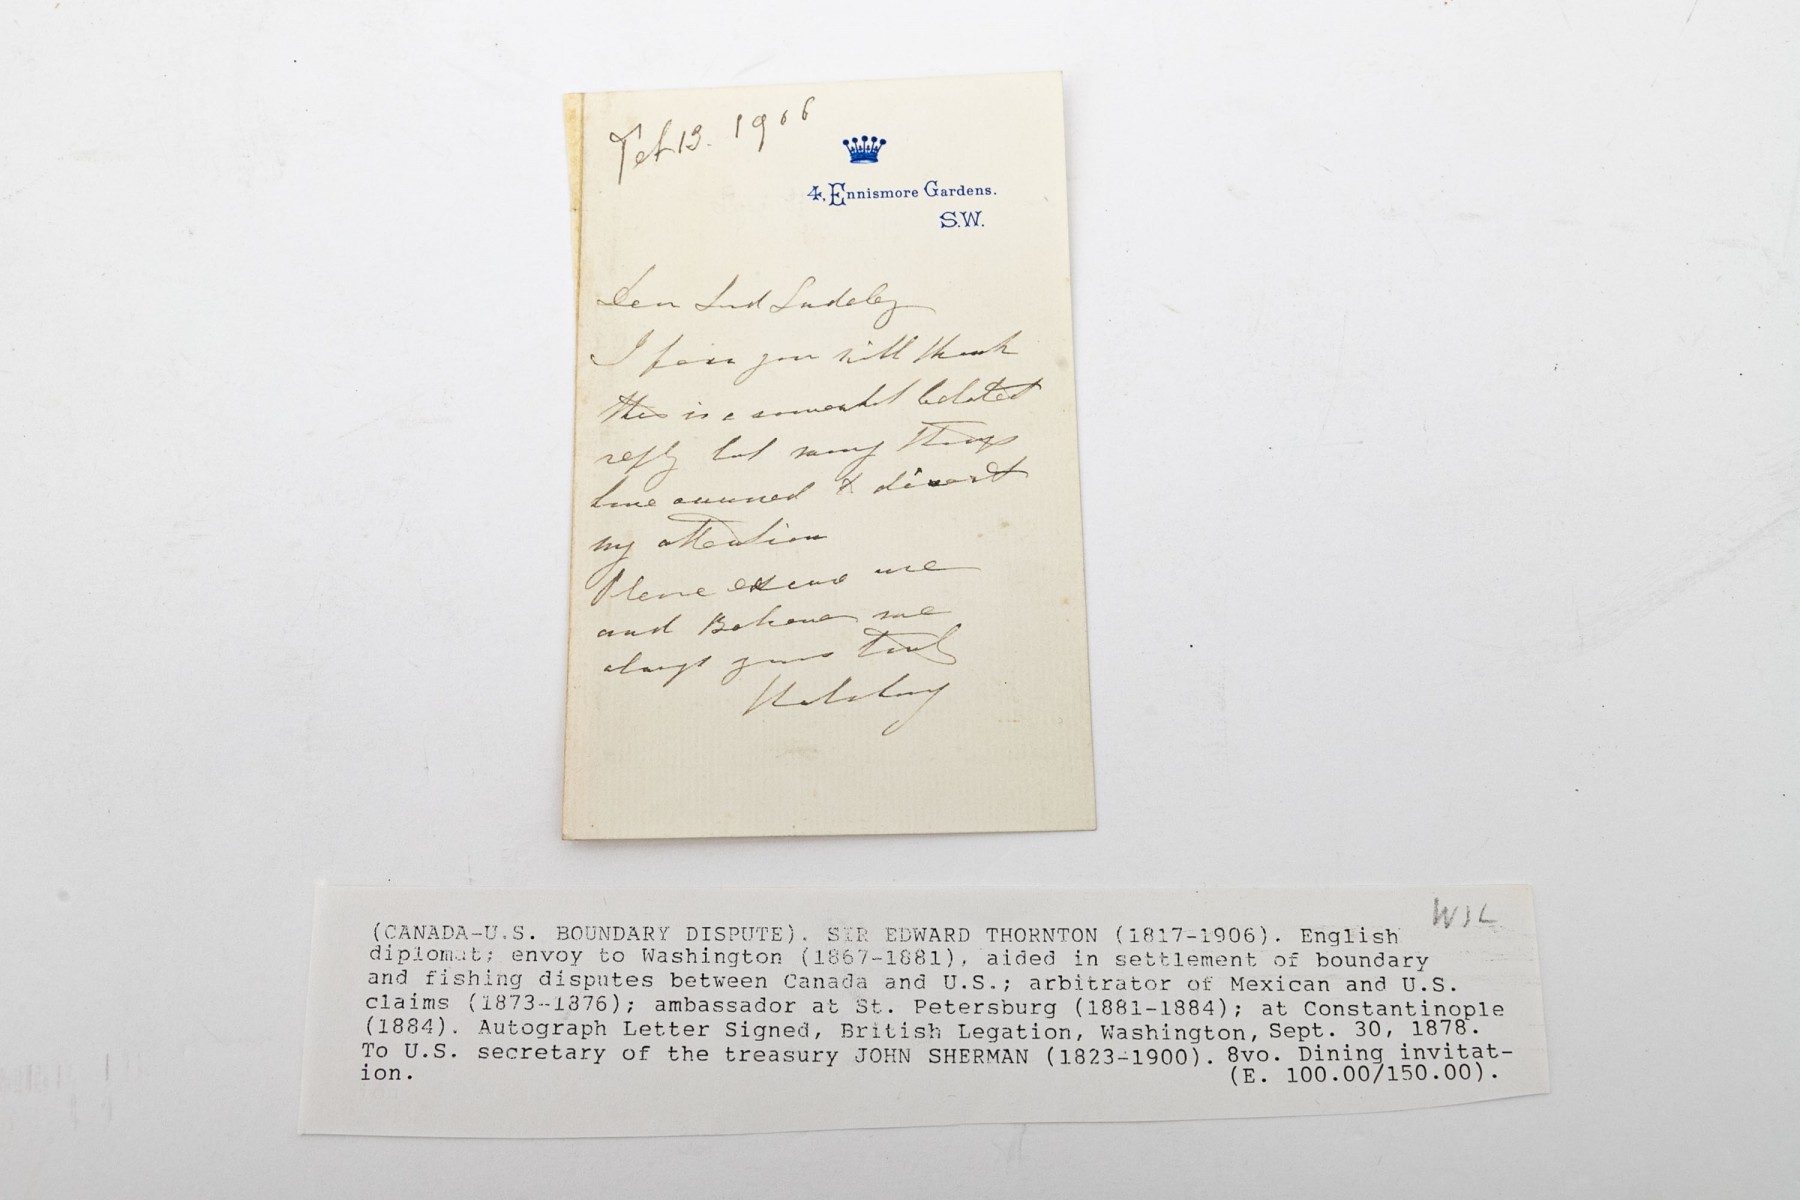 Feb 13. 1906
4, Ennismore Gardens.
S.W.
Dear Lord Sudeley
I fear you will think
this is a somewhat belated
reply but many things
have occurred to divert
my attention
Please excuse me
and Believe me
always yours truly
(CANADA-U.S. BOUNDARY DISPUTE). SIR EDWARD THORNTON (1817-1906). English
diplomat; envoy to Washington (1867-1881), aided in settlement of boundary
and fishing disputes between Canada and U.S.; arbitrator of Mexican and U.S.
claims (1873--1876); ambassador at St. Petersburg (1881-1884); at Constantinople
(1884). Autograph Letter Signed, British Legation, Washington, Sept. 30, 1878.
To U.S. secretary of the treasury JOHN SHERMAN (1823-1900). 8vo. Dining invitat-
ion. (E. 100.00/150.00).